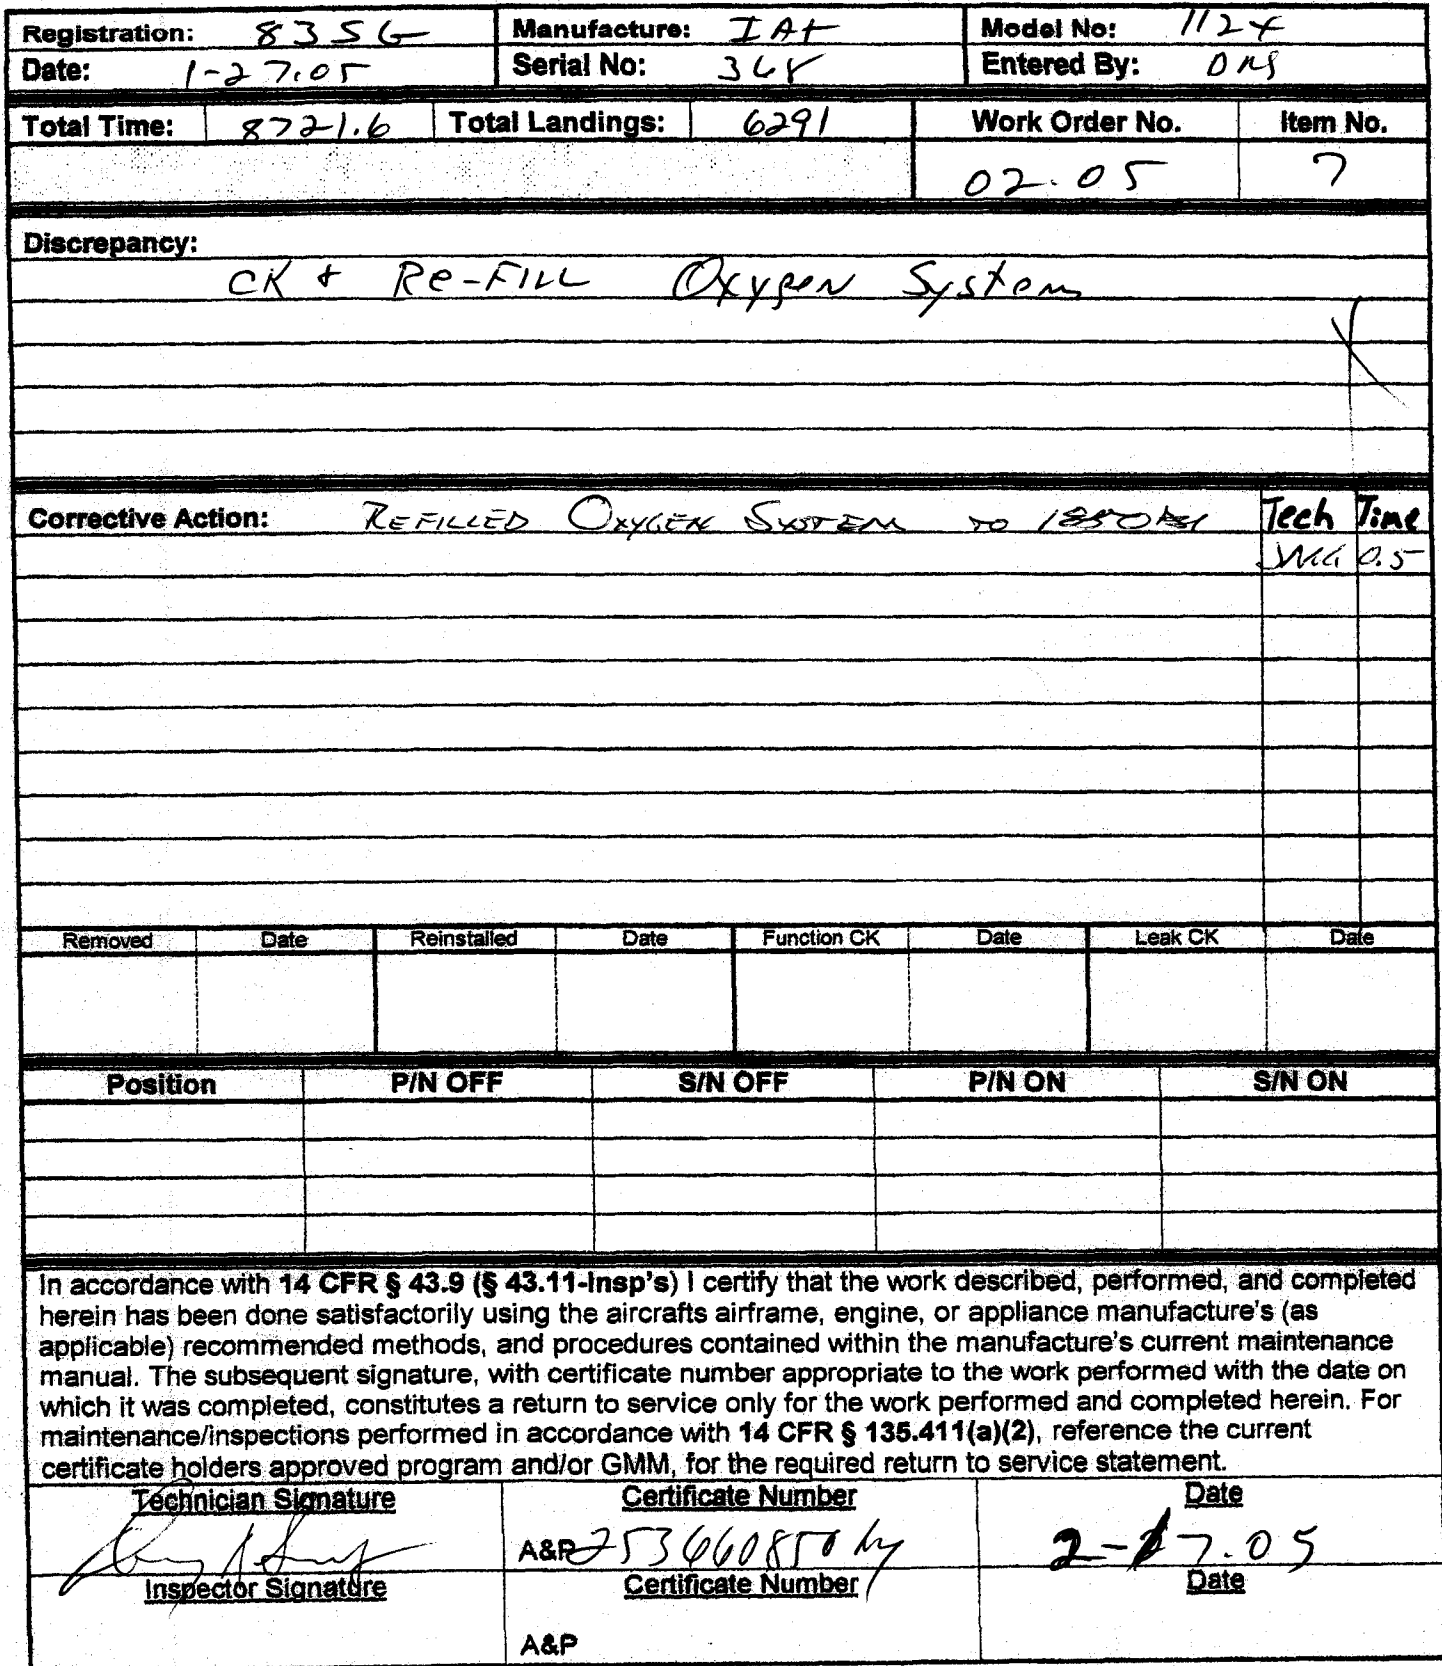 Registration: 835G Manufacture: IAI Model No: 1124
Date: 1-27.05 Serial No: 368 Entered By: DMS
Total Time: 8721.6 Total Landings: 6291 Work Order No. Item No.
02.05 7
Discrepancy:
CK & Re-FILL Oxygen System
Corrective Action: REFILLED OXYGEN SYSTEM TO 1850 PSI Tech Time
0.5
Removed Date Reinstalled Date Function CK Date Leak CK Date
Position P/N OFF S/N OFF P/N ON S/N ON
In accordance with 14 CFR § 43.9 (§ 43.11-Insp's) I certify that the work described, performed, and completed
herein has been done satisfactorily using the aircrafts airframe, engine, or appliance manufacture's (as
applicable) recommended methods, and procedures contained within the manufacture's current maintenance
manual. The subsequent signature, with certificate number appropriate to the work performed with the date on
which it was completed, constitutes a return to service only for the work performed and completed herein. For
maintenance/inspections performed in accordance with 14 CFR § 135.411(a)(2), reference the current
certificate holders approved program and/or GMM, for the required return to service statement.
Technician Signature Certificate Number Date
A&P 253660850 2-7.05
Inspector Signature Certificate Number Date
A&P